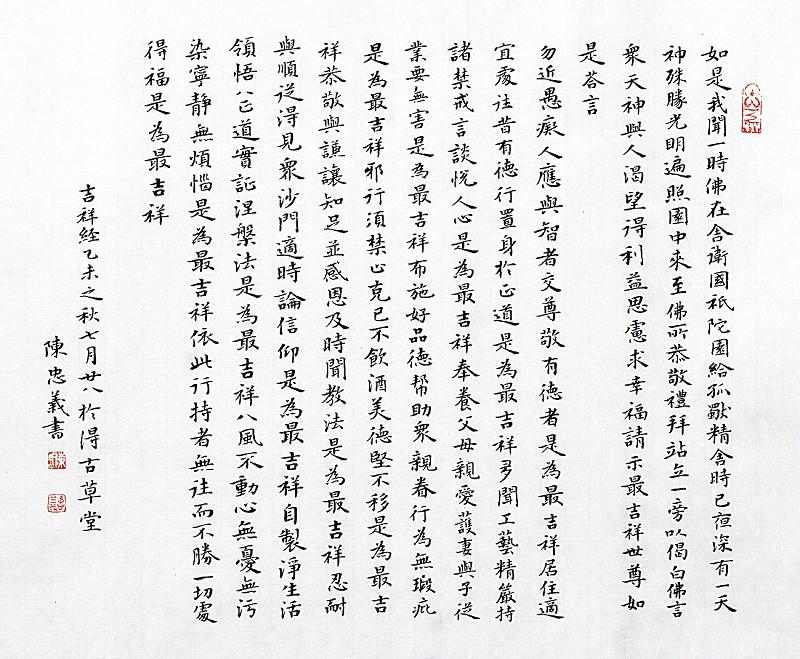 如是我聞一時佛在舍衛國祇陀園給孤獨精舍時已夜深有一天
神殊勝光明遍照園中來至佛所恭敬禮拜站立一旁以偈白佛言
衆天神與人渴望得利益思慮求幸福請示最吉祥世尊如
是答言
勿近愚癡人應與智者交尊敬有德者是為最吉祥居住適
宜處往昔有德行置身於正道是為最吉祥多聞工藝精嚴持
諸禁戒言談悅人心是為最吉祥奉養父母親愛護妻與子從
業要無害是為最吉祥布施好品德帮助衆親眷行為無瑕疵
是為最吉祥邪行須禁止克己不飲酒美德堅不移是為最吉
祥恭敬與謙讓知足並感恩及時聞教法是為最吉祥忍耐
與順從得見衆沙門適時論信仰是為最吉祥自製淨生活
領悟八正道實証涅槃法是為最吉祥八風不動心無憂無污
染寧静無煩惱是為最吉祥依此行持者無往而不勝一切處
得福是為最吉祥
吉祥経乙未之秋七月廿八於得古草堂
陳忠義書